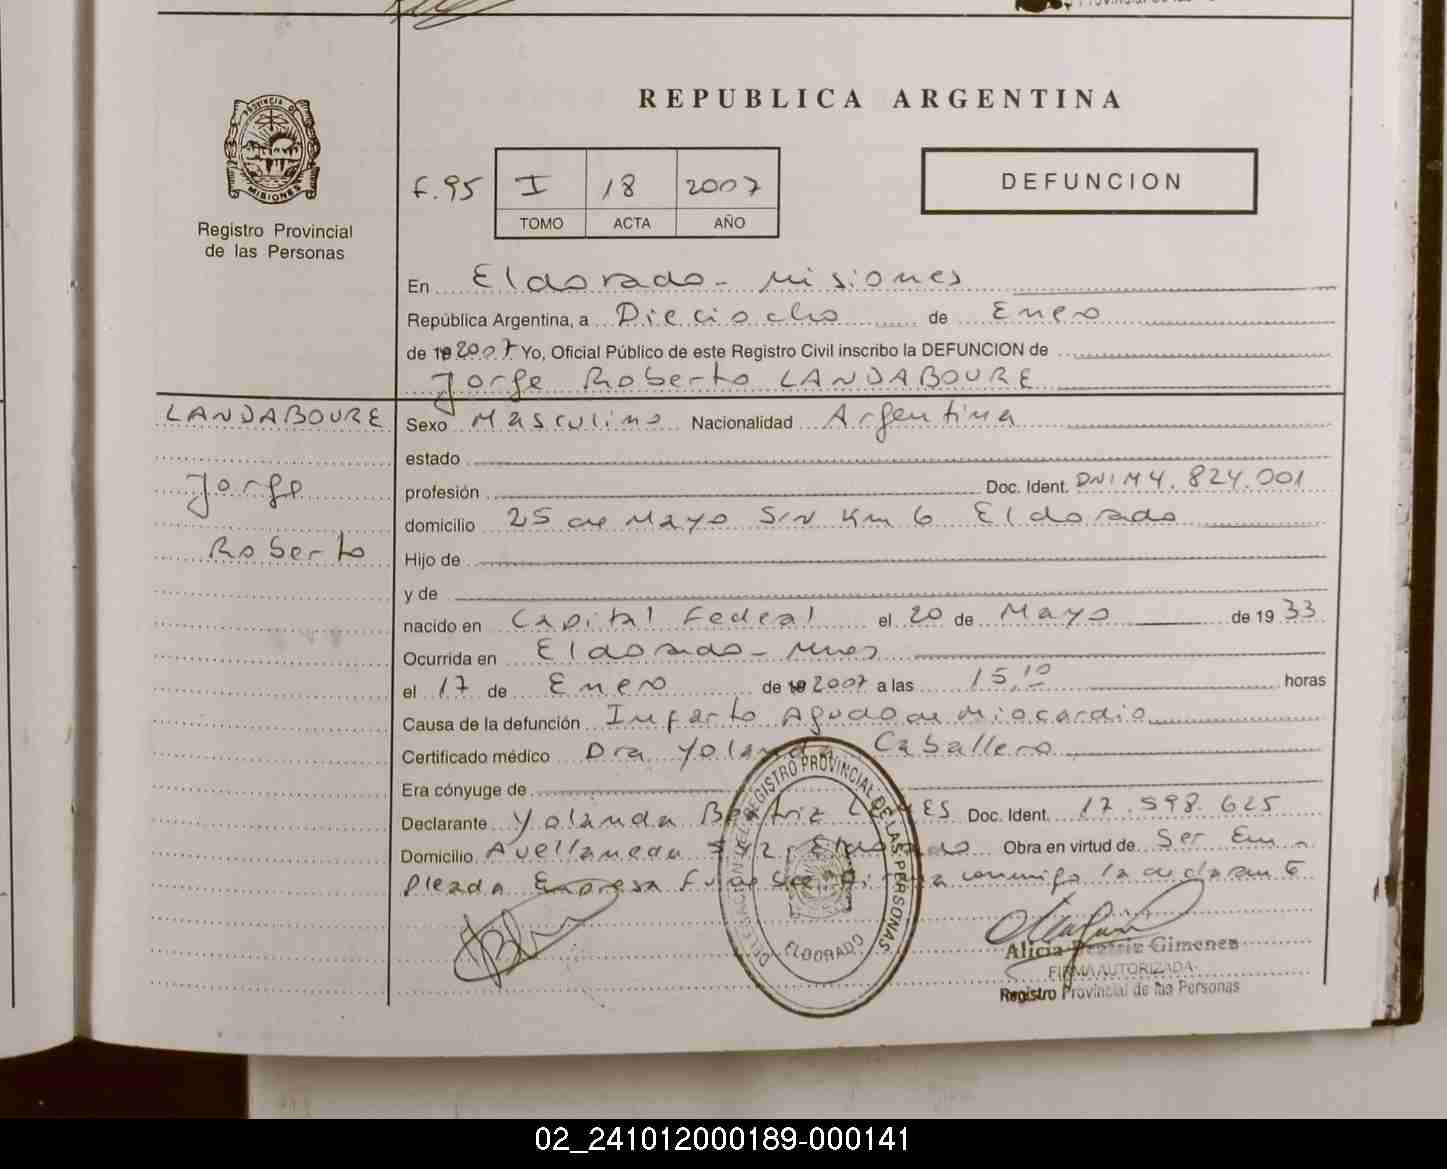 PROVINCIA DE
MISIONES
Registro Provincial
de las Personas
REPUBLICA ARGENTINA
F.95 I 18 2007
TOMO ACTA AÑO
DEFUNCION
En Eldorado - Misiones
República Argentina, a Dieciocho de Enero
de 19 2007 Yo, Oficial Público de este Registro Civil inscribo la DEFUNCION de
Jorge Roberto LANDABOURE
LANDABOURE
Jorge
Roberto
Sexo Masculino Nacionalidad Argentina
estado
profesión Doc. Ident. DNI M 4.824.001
domicilio 25 de Mayo S/N Km 6 Eldorado
Hijo de
y de
nacido en Capital Federal el 20 de Mayo de 1933
Ocurrida en Eldorado - Mnes
el 17 de Enero de 19 2007 a las 15,10 horas
Causa de la defunción Infarto Agudo de Miocardio
Certificado médico Dra Yolanda Caballero
Era cónyuge de
Declarante Yolanda Beatriz Doc. Ident. 17.598.625
Domicilio Avellaneda 542, Eldorado Obra en virtud de Ser Em
pleada Empresa conmigo la declarante
DELEGACION DEL REGISTRO PROVINCIAL DE LAS PERSONAS
ELDORADO
Alicia Beatriz Gimenez
FIRMA AUTORIZADA
Registro Provincial de las Personas
02_241012000189-000141